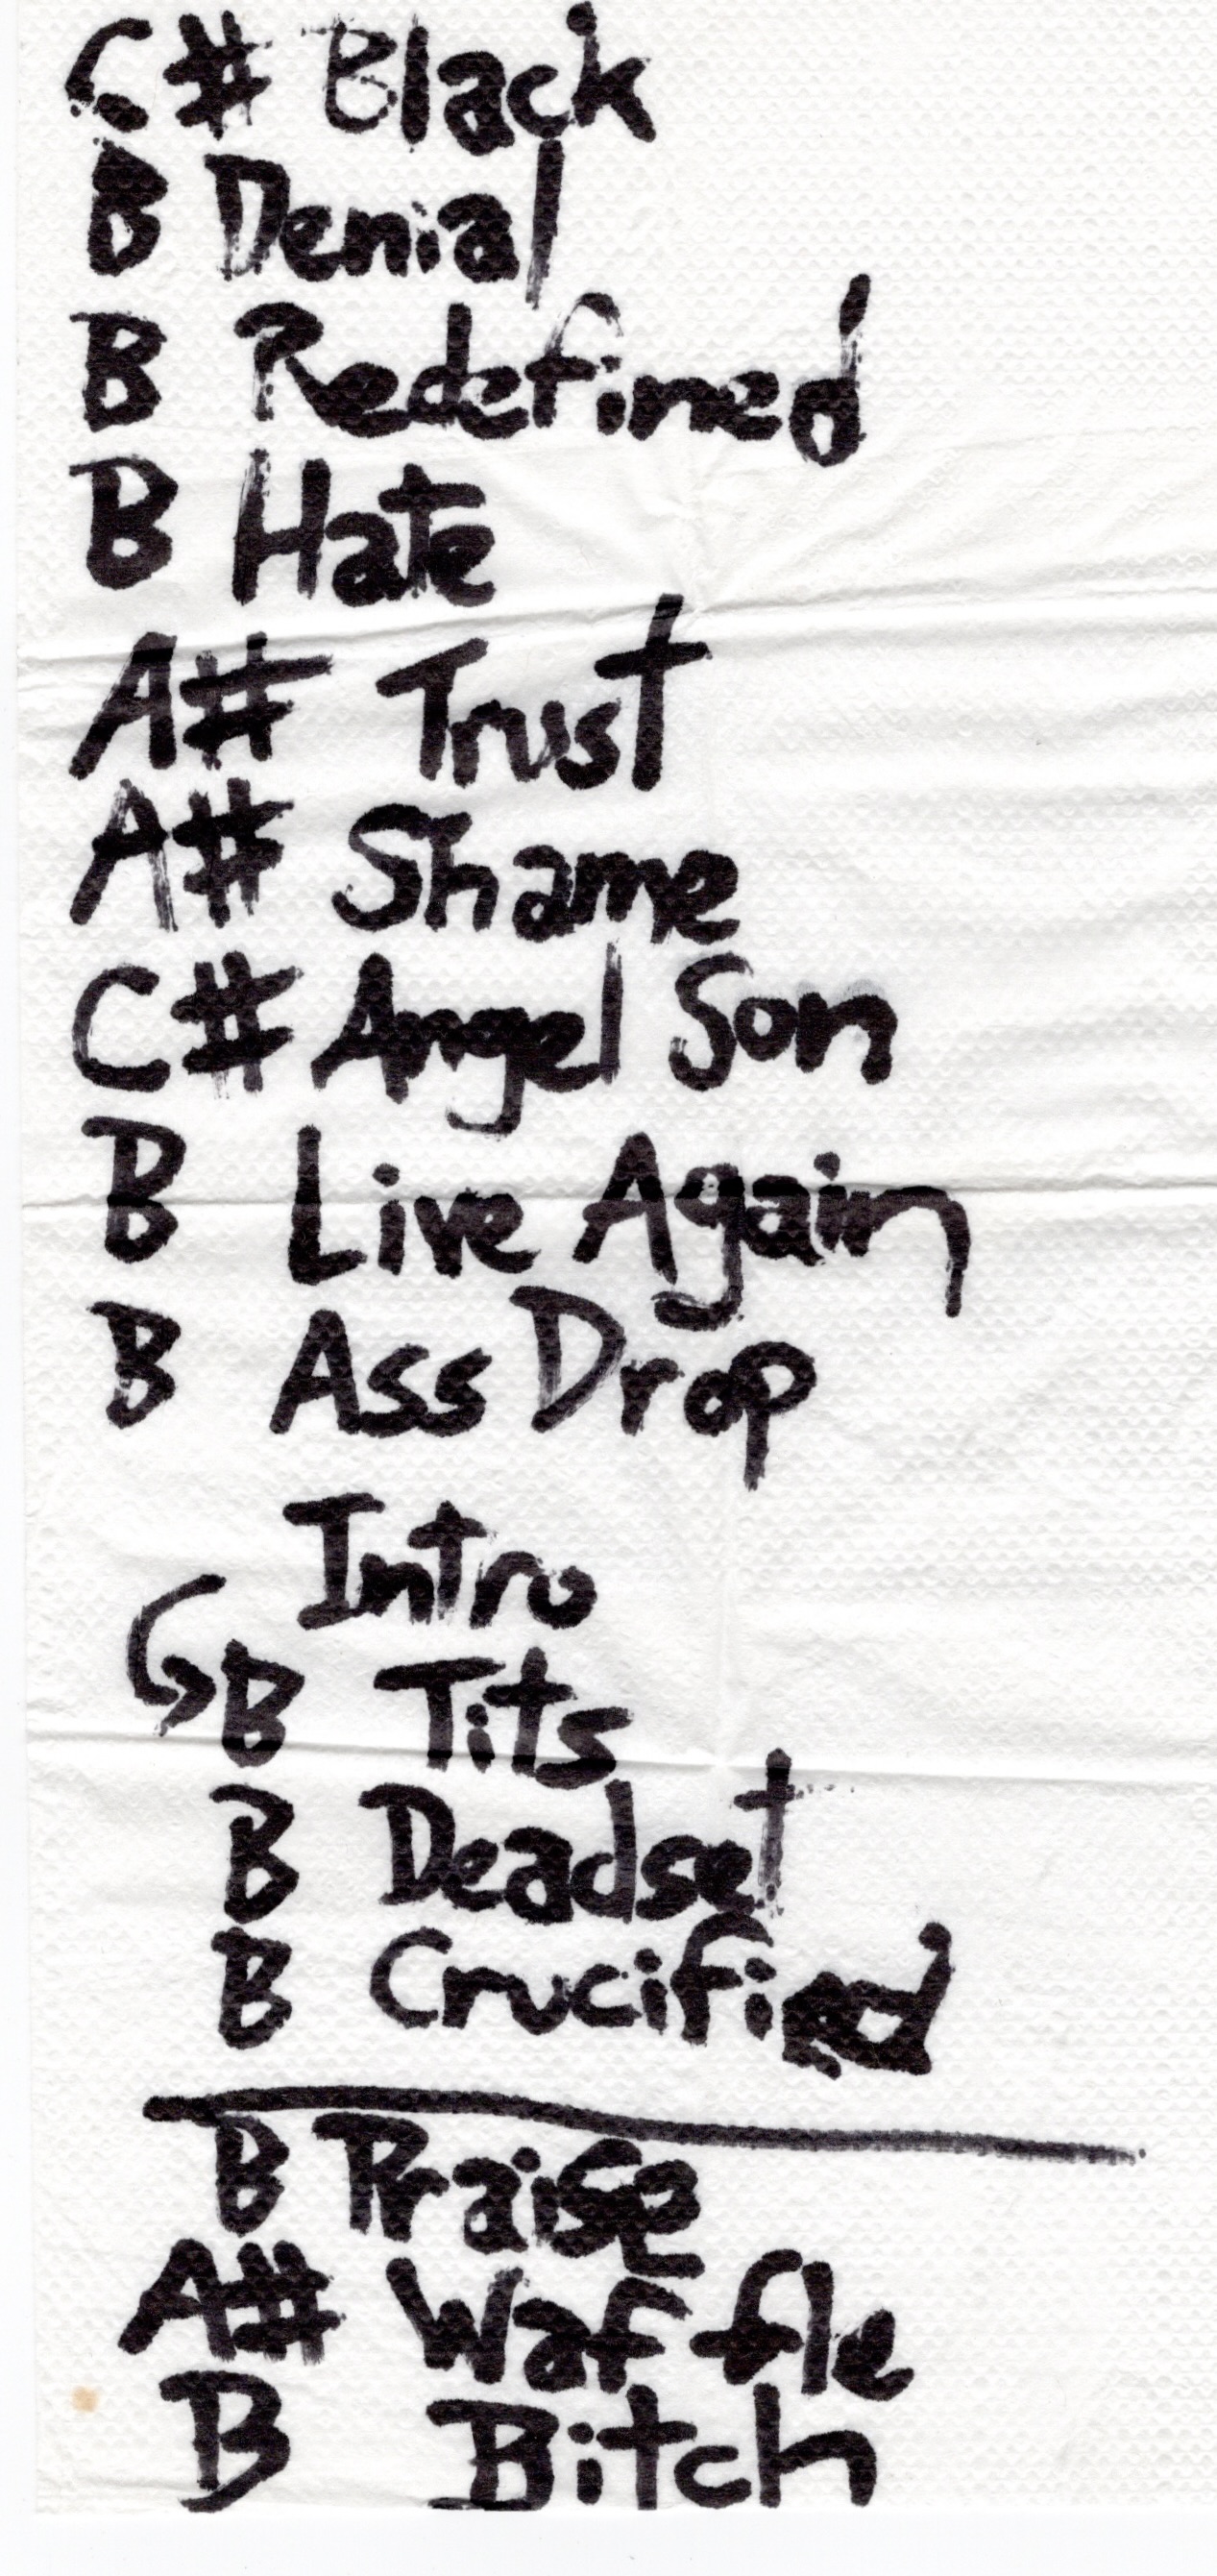 C# Black
B Denial
B Redefined
B Hate
A# Trust
A# Shame
C# Angel Son
B Live Again
B Ass Drop
Intro
B Tits
B Deadset
B Crucified
B Praise
A# Waffle
B Bitch